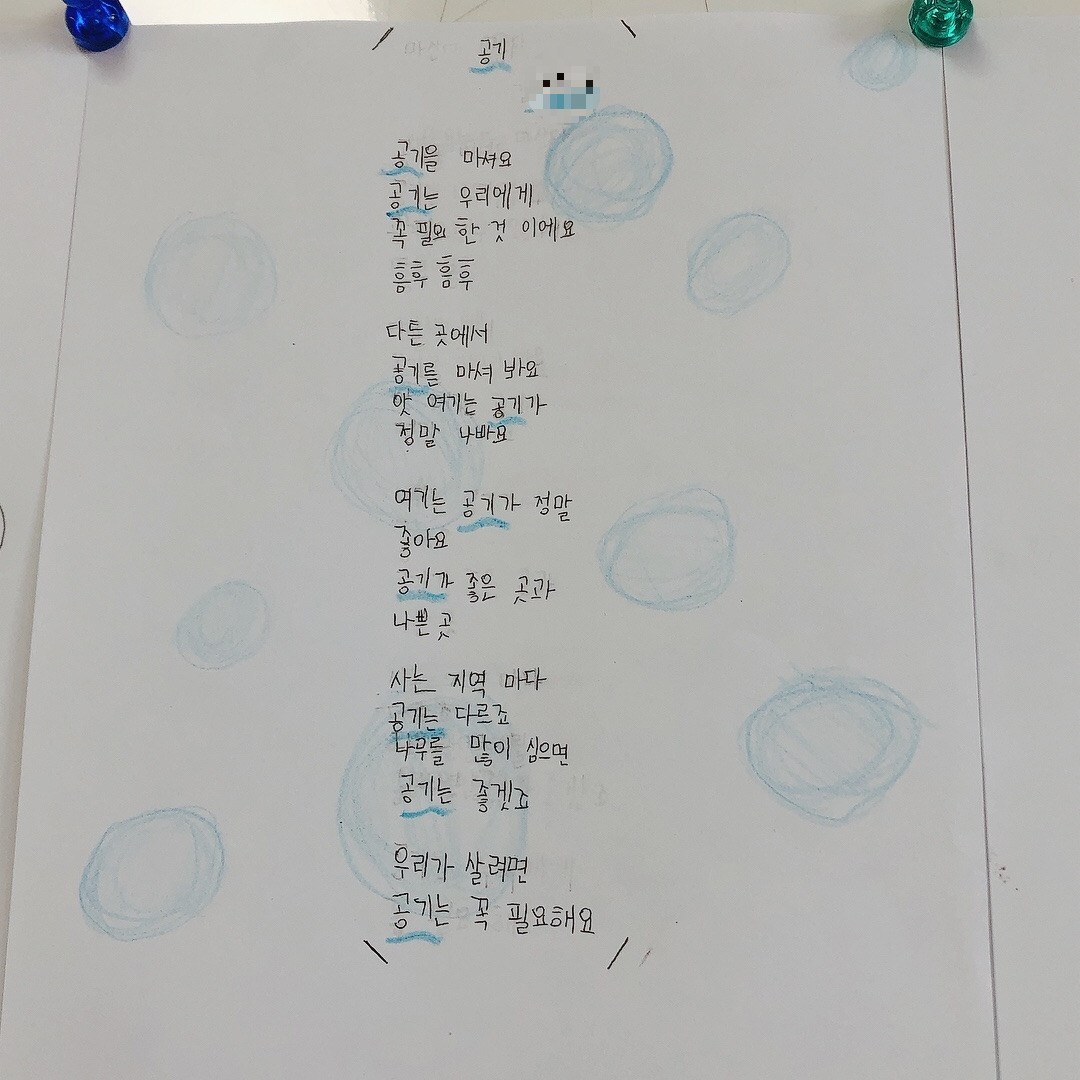 공기
공기을 마셔요
공기는 우리에게
꼭 필요 한 것 이에요
흠후 흠후
다른 곳에서
공기를 마셔 봐요
앗 여기는 공기가
정말 나빠요
여기는 공기가 정말
좋아요
공기가 좋은 곳과
나쁜 곳
사는 지역 마다
공기는 다르죠
나무를 많이 심으면
공기는 좋겟죠
우리가 살려면
공기는 꼭 필요해요